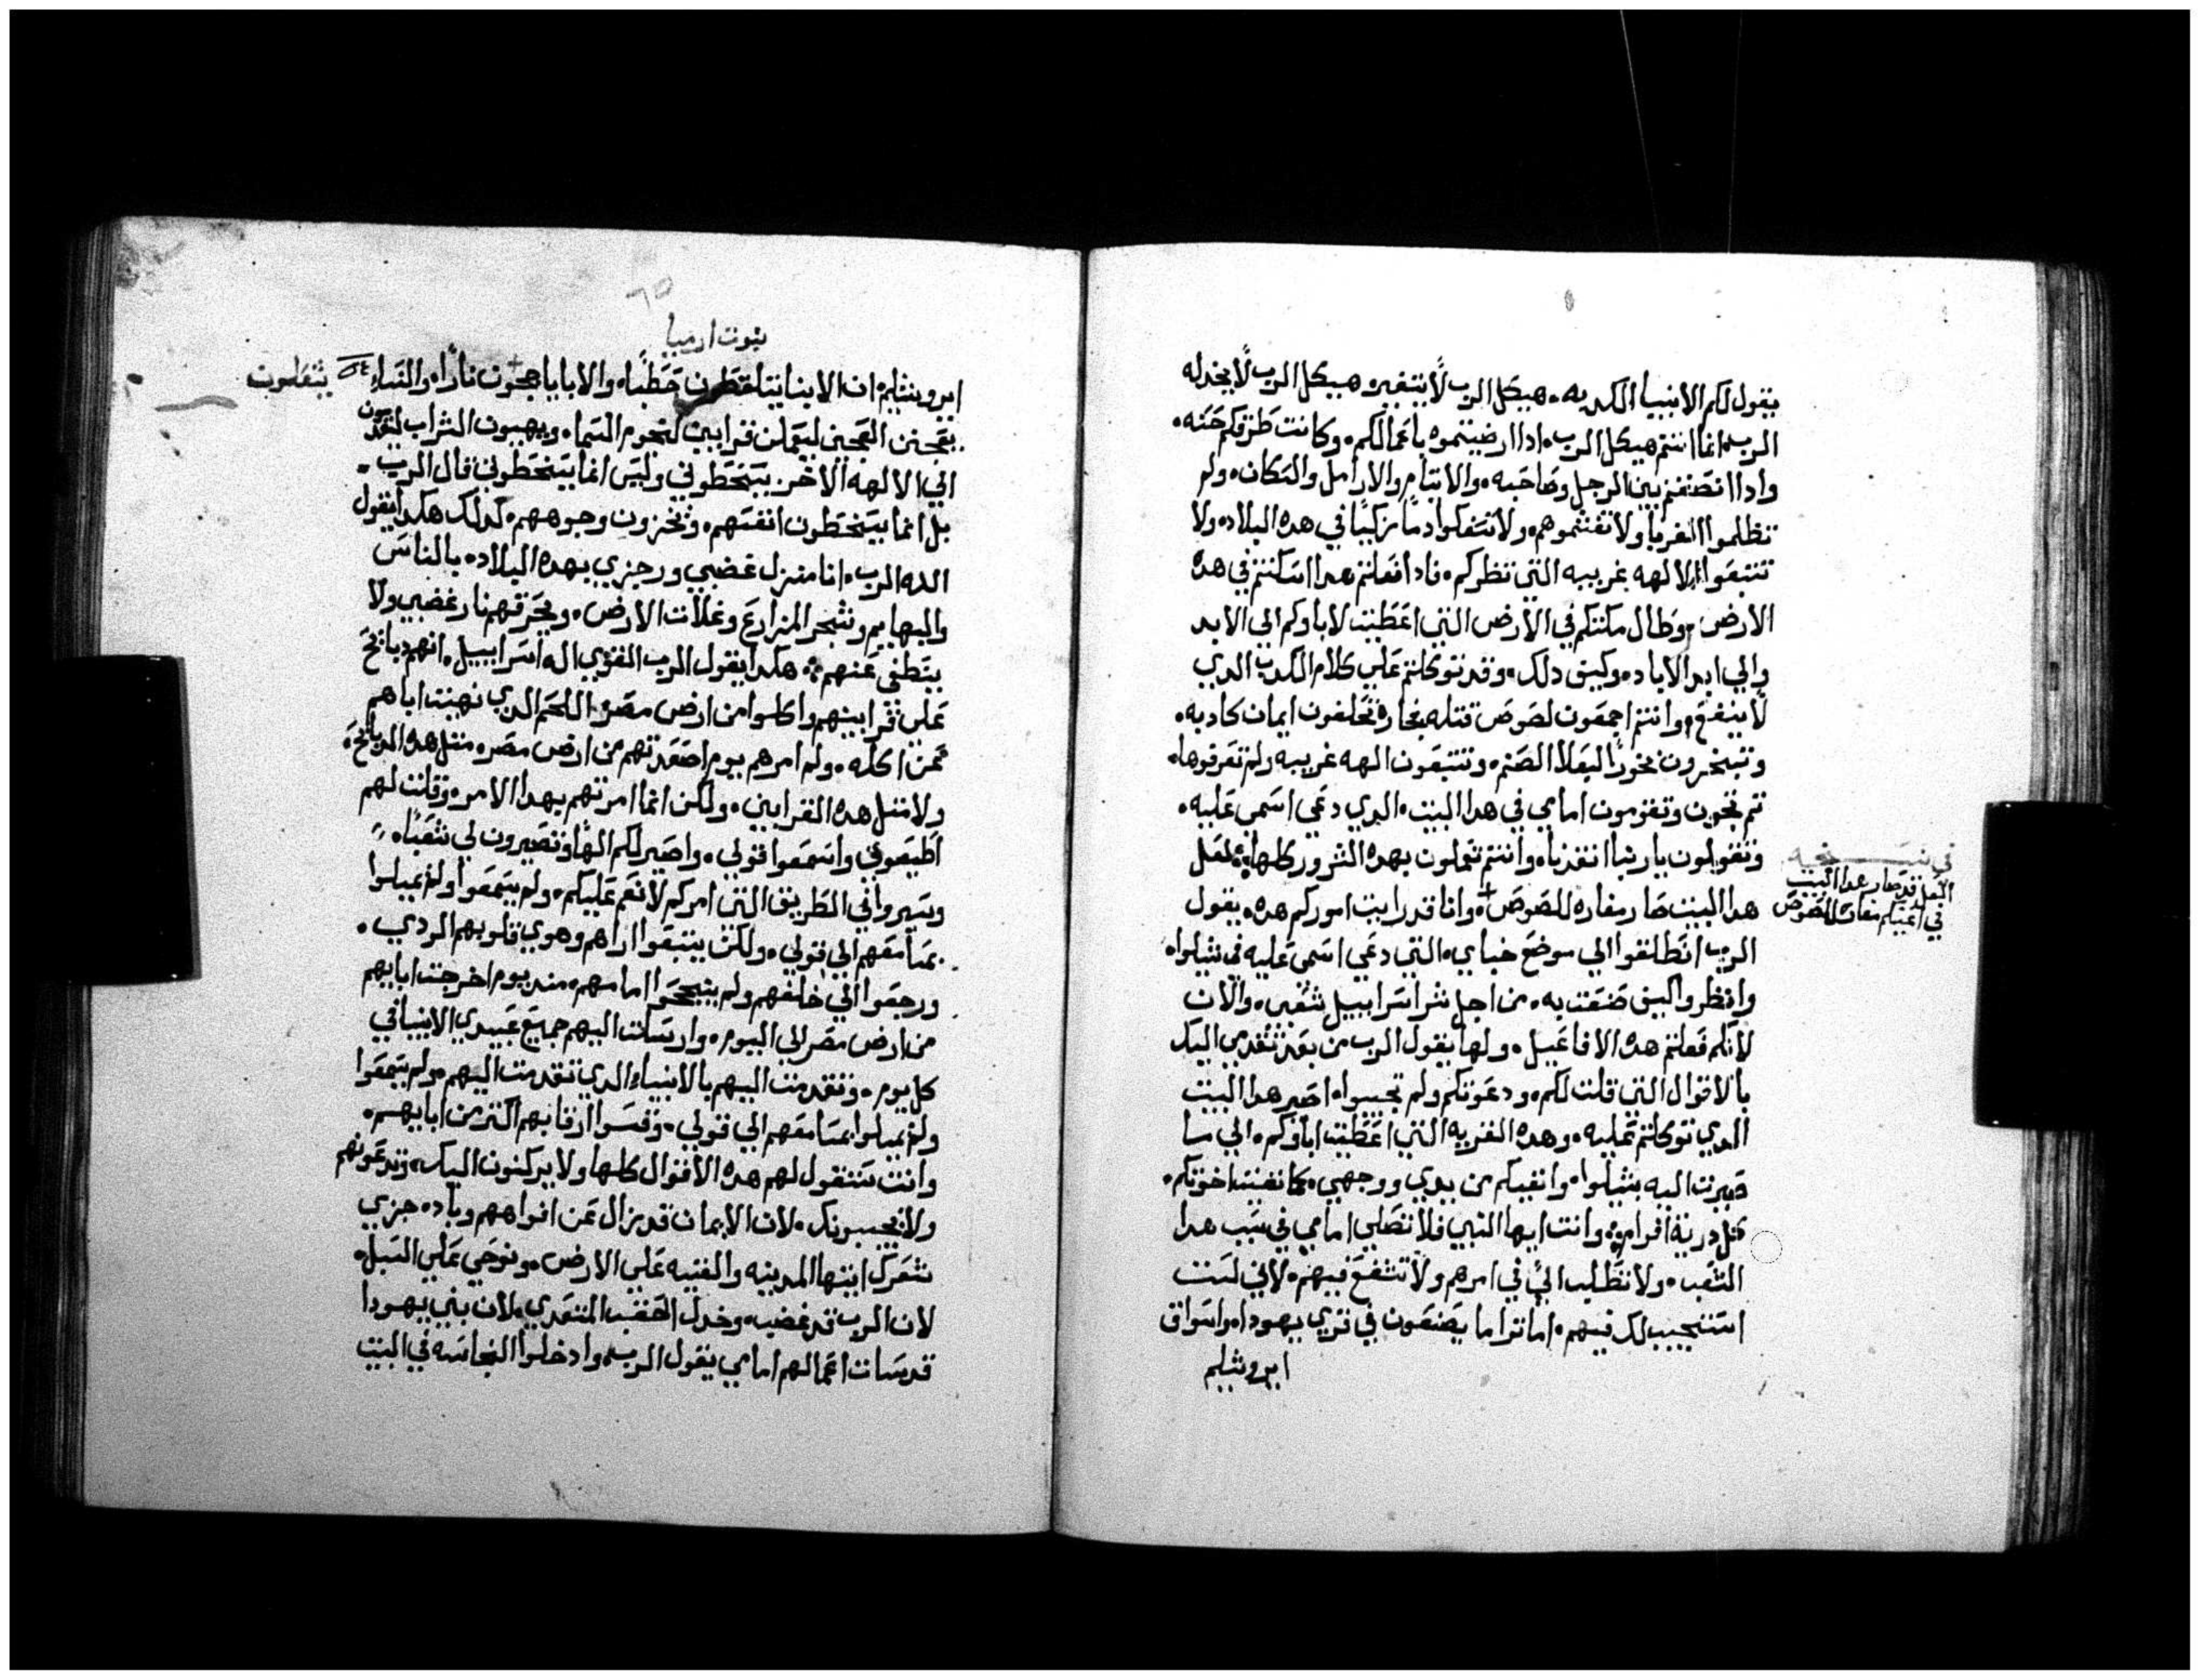 يقول لكم الانبيا الكدبه . هيكل الرب لا يتغير هيكل الرب لا يخدله
الرب انما انتم هيكل الرب . ادا ارضيتموه باعمالكم . وكانت طرقكم حسنه .
وادا انصفتم بين الرجل وصاحبه . والايتام والارامل والسكان . ولم
تظلموا الغربا ولا تغشموهم . ولا تسفكوا دما زكيا في هده البلاد . ولا
تتبعوا الالهه غريبه التي تظركم . فادا فعلتم هدا اسكنتم في هده
الارض . وطال مكتكم في الارض التي اعطيت لاباوكم الي الابد
والي ابد الاباد . وكيف دلك . وقد توكلتم علي كلام الكدب الدي
لا ينفع . وانتم اجمعون لصوص قتله فجاره تحلفون ايمان كادبه .
وتبخرون بخورا لبعلا الصنم . وتتبعون الهه غريبه ولم تعرفوها .
تم تجون وتقومون امامي في هدا البيت . الدي دعي اسمي عليه .
وتقولون يا ربنا انقدنا . وانتم تعملون بهده الشرور كلها . لعل
هدا البيت صار مغاره للصوص . وانا قد رايت اموركم هده . يقول
الرب انطلقوا الي موضع خباي . التي دعي اسمي عليه في شيلوا .
وانظروا كيف صنعت به . من اجل شر اسراييل شعبي . والان
لانكم فعلتم هده الافاعيل . ولها يقول الرب من بعد تقدمي اليك
بالاقوال التي قلت لكم . ودعوتكم ولم تجيبوا . اصير هدا البيت
الدي توكلتم عليه . وهده القريه التي اعطيت اباوكم . الي ما
صيرت اليه بشيلوا . وانفيكم من يدي ووجهي . كما نفيت اخوتكم .
كل درية افرام . وانت ايها النبي فلا تصلي امامي في سبب هدا
الشعب . ولا تطلب الي في امرهم ولا تشفع فيهم . لاني لست
استجيب لك فيهم . اما ترا ما يصنعون في قري يهودا . واسواق
ايروشليم
في نسخه
لعل قد صار هدا البيت
في اعينكم مغارة للصوص
نبوت ارميا
ايروشليم . ان الابنا يتلقطون حطبا . والابا ياججون نارا . والنساء يشعلون
يعجنن العجين ليعملن قرابين لنجوم السما . ويهيبون الشراب ليقدمون
الي الالهه الاخر . يسخطوني وليس انما يسخطوني قال الرب .
بل انما يسخطون انفسهم . وتخزون وجوههم . كدلك هكدا يقول
الله الرب . انا منزل غضبي ورجزي بهده البلاد . بالناس
والبهايم وشجر المزارع وغلات الارض . ويحرقهم نار غضبي ولا
يتطفى عنهم . هكدا يقول الرب القوي اله اسراييل . انهم دبايح
علي قرابينهم واكلوا من ارض مصر . اللحم الدي نهيت اباهم
عن اكله . ولم امرهم يوم اصعدتهم من ارض مصر . متل هده الدبايح .
ولا متل هده القرابين . ولكن انما امرتهم بهدا الامر . وقلت لهم
اطيعوني واسمعوا قولي . واصير لكم الها وتصيرون لي شعبا .
وسيروا في الطريق التي امركم لانعم عليكم . ولم يسمعوا ولم يميلوا
بمسامعهم الي قولي . ولكن يتبعوا اراهم وهوي قلوبهم الردي .
ورجعوا الي خلفهم ولم ينجحوا امامهم . مند يوم اخرجت اباييهم
من ارض مصر الي اليوم . وارسلت اليهم جميع عبيدي الانبيا في
كل يوم . وتقدمت اليهم بالانبياء الدي تقدمت اليهم . ولم يسمعوا
ولم يميلوا بمسامعهم الي قولي . وقسوا ارقابهم اكتر من اباييهم .
وانت ستقول لهم هده الاقوال كلها ولا يركنون اليك . وتدعونهم
ولا يجيبونك . لان الايمان قد يزال عن افواههم وباد . جزي
شعرك ايتها المدينه والقيه علي الارض . ونوحي علي السبل .
لان الرب قد غضب . وخدل الحقب المتعدي . لان بني يهودا
قد سات اعمالهم امامي يقول الرب . وادخلوا النجاسه في البيت